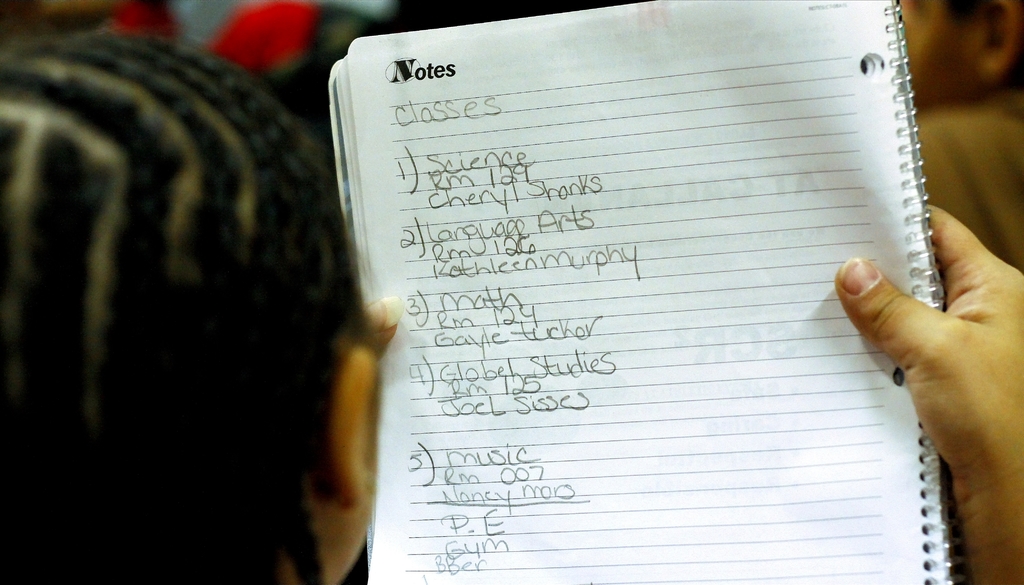 Notes
Classes
1) Science
Rm 129
Cheryl Shanks
2) Language Arts
Rm 126
Kathleen murphy
3) math
Rm 124
Gayle tucker
4) Global Studies
Rm 125
Joel Sisses
5) music
Rm 007
Nancy mars
P.E
Gym